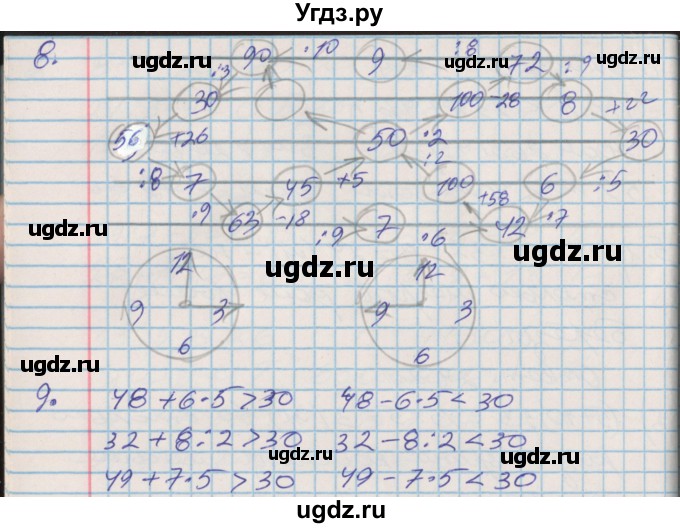 Угдз.ру
8.
90 :10 9 :8 72 :9
ugdz.ru
ugdz.ru
:3
30 100 -28 8 +22
56 +26 50 :2 30
:8 7 45 +5 :2 100 +58 6 :5
:9 63 -18 :9 7 :6 42 :7
ugdz.ru
ugdz.ru
ugdz.ru
12
9 3
6
12
9 3
6
ugdz.ru
ugdz.ru
9. 48 + 6·5 > 30 48 - 6·5 < 30
32 + 8:2 > 30 32 - 8:2 < 30
ugdz.ru
ugdz.ru
49 + 7·5 > 30 49 - 7·5 < 30
ugdz.ru